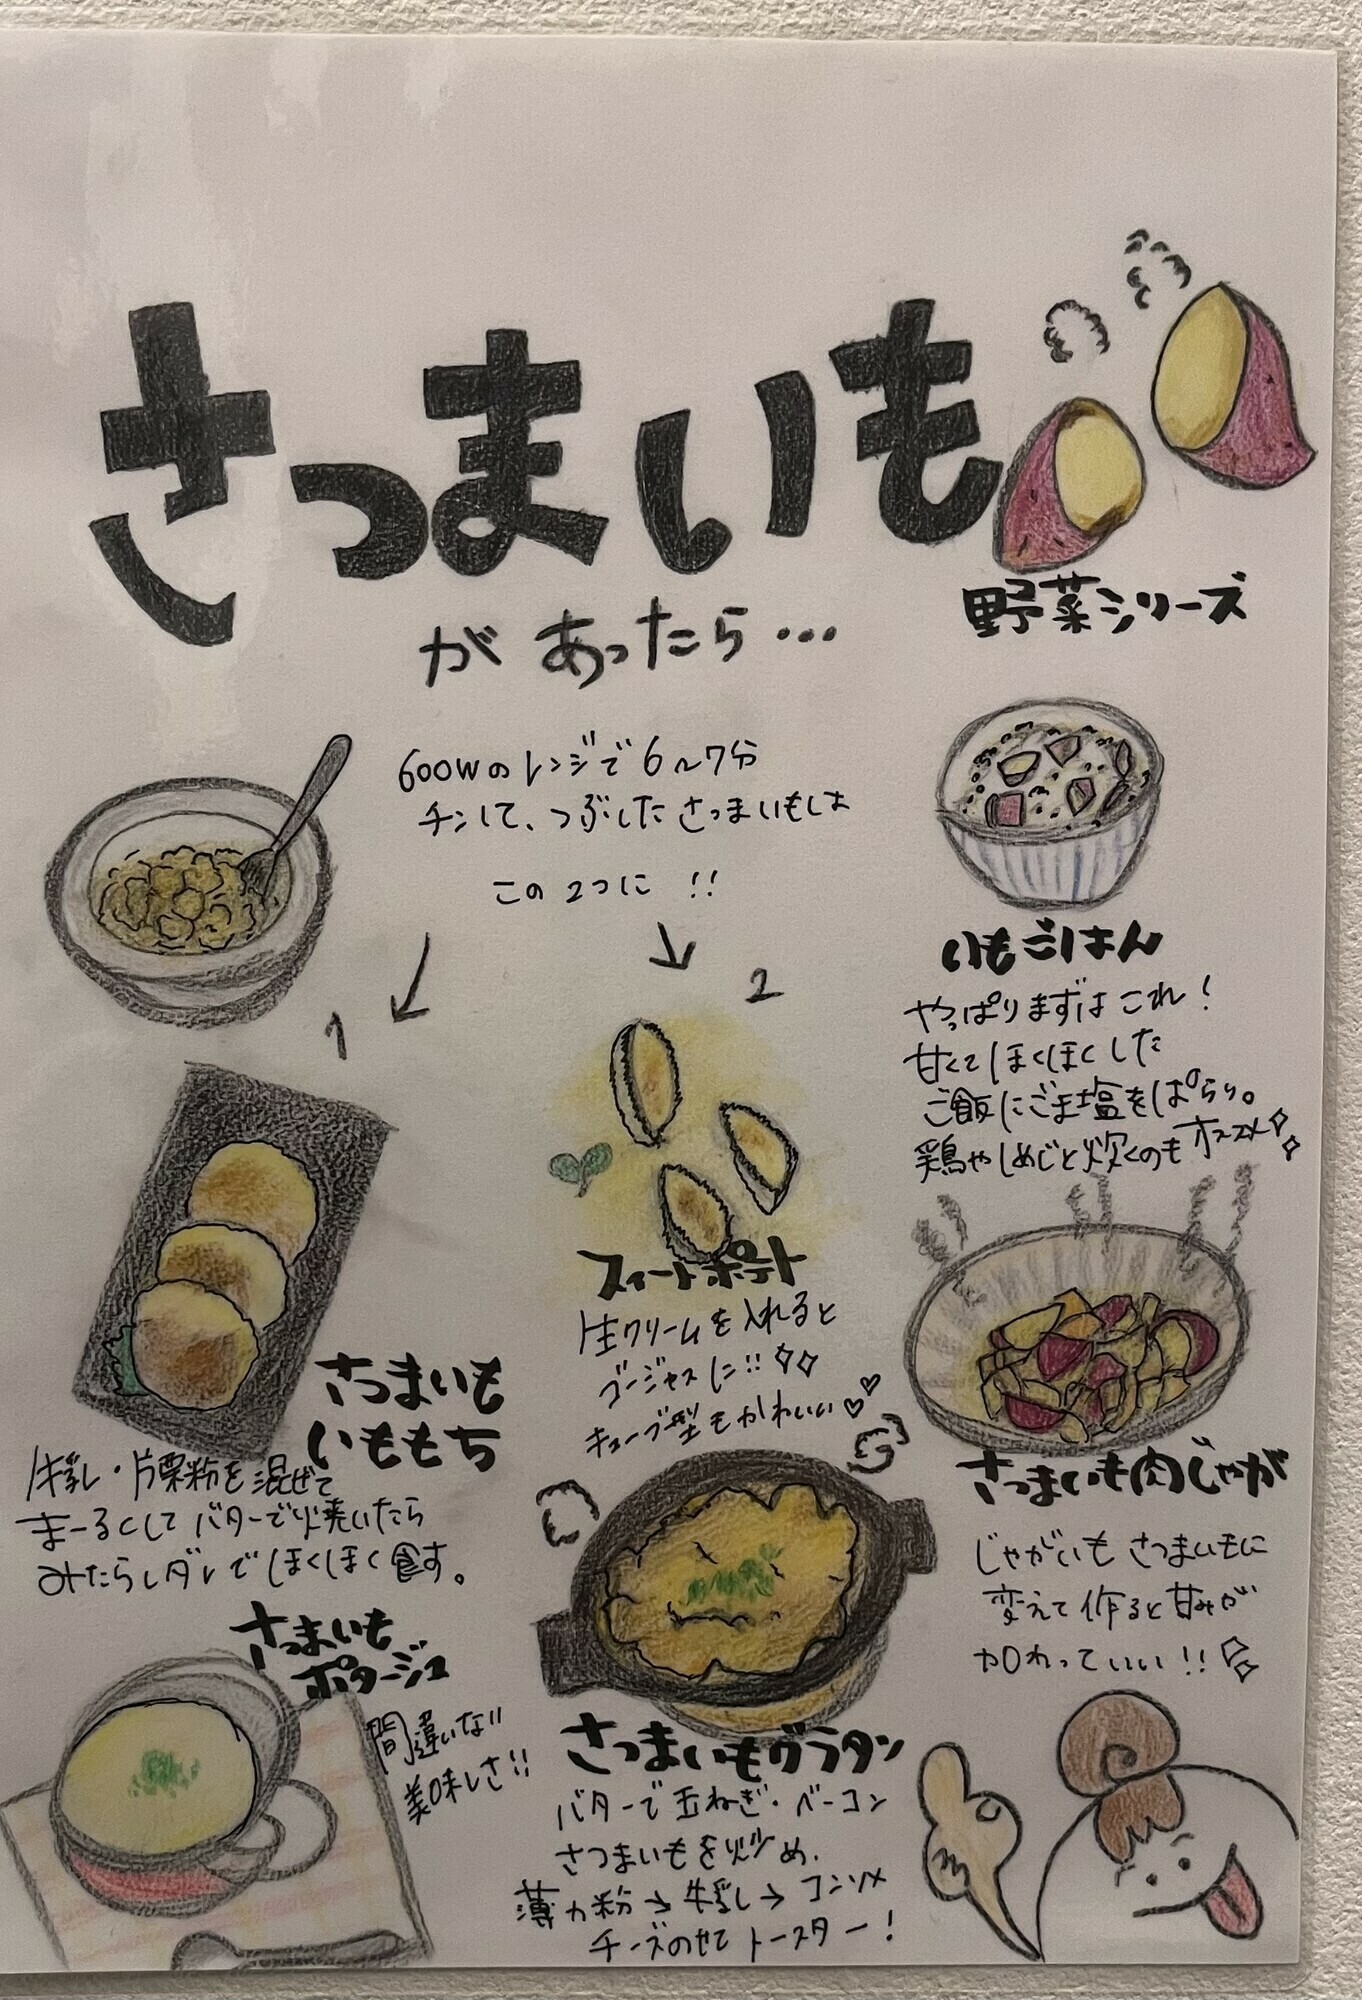 さつまいも
があったら…
野菜シリーズ
600Wのレンジで6〜7分
チンして、つぶしたさつまいもは
この2つに !!
1
2
いもごはん
やっぱりまずはこれ!
甘くてほくほくした
ご飯にごま塩をぱらり。
鶏やしめじと炊くのもオススメ
スイートポテト
生クリームを入れると
ゴージャスに!!
キューブ型もかわいい♡♡
さつまいも
いももち
牛乳・片栗粉を混ぜて
まーるくしてバターで焼いたら
みたらしダレでほくほく食す。
さつまいも肉じゃが
じゃがいもさつまいもに
変えて作ると甘みが
加わっていい!!
さつまいも
ポタージュ
間違いない
美味しさ!!
さつまいもグラタン
バターで玉ねぎ・ベーコン
さつまいもを炒め、
薄力粉→牛乳→コンソメ
チーズのせてトースター!